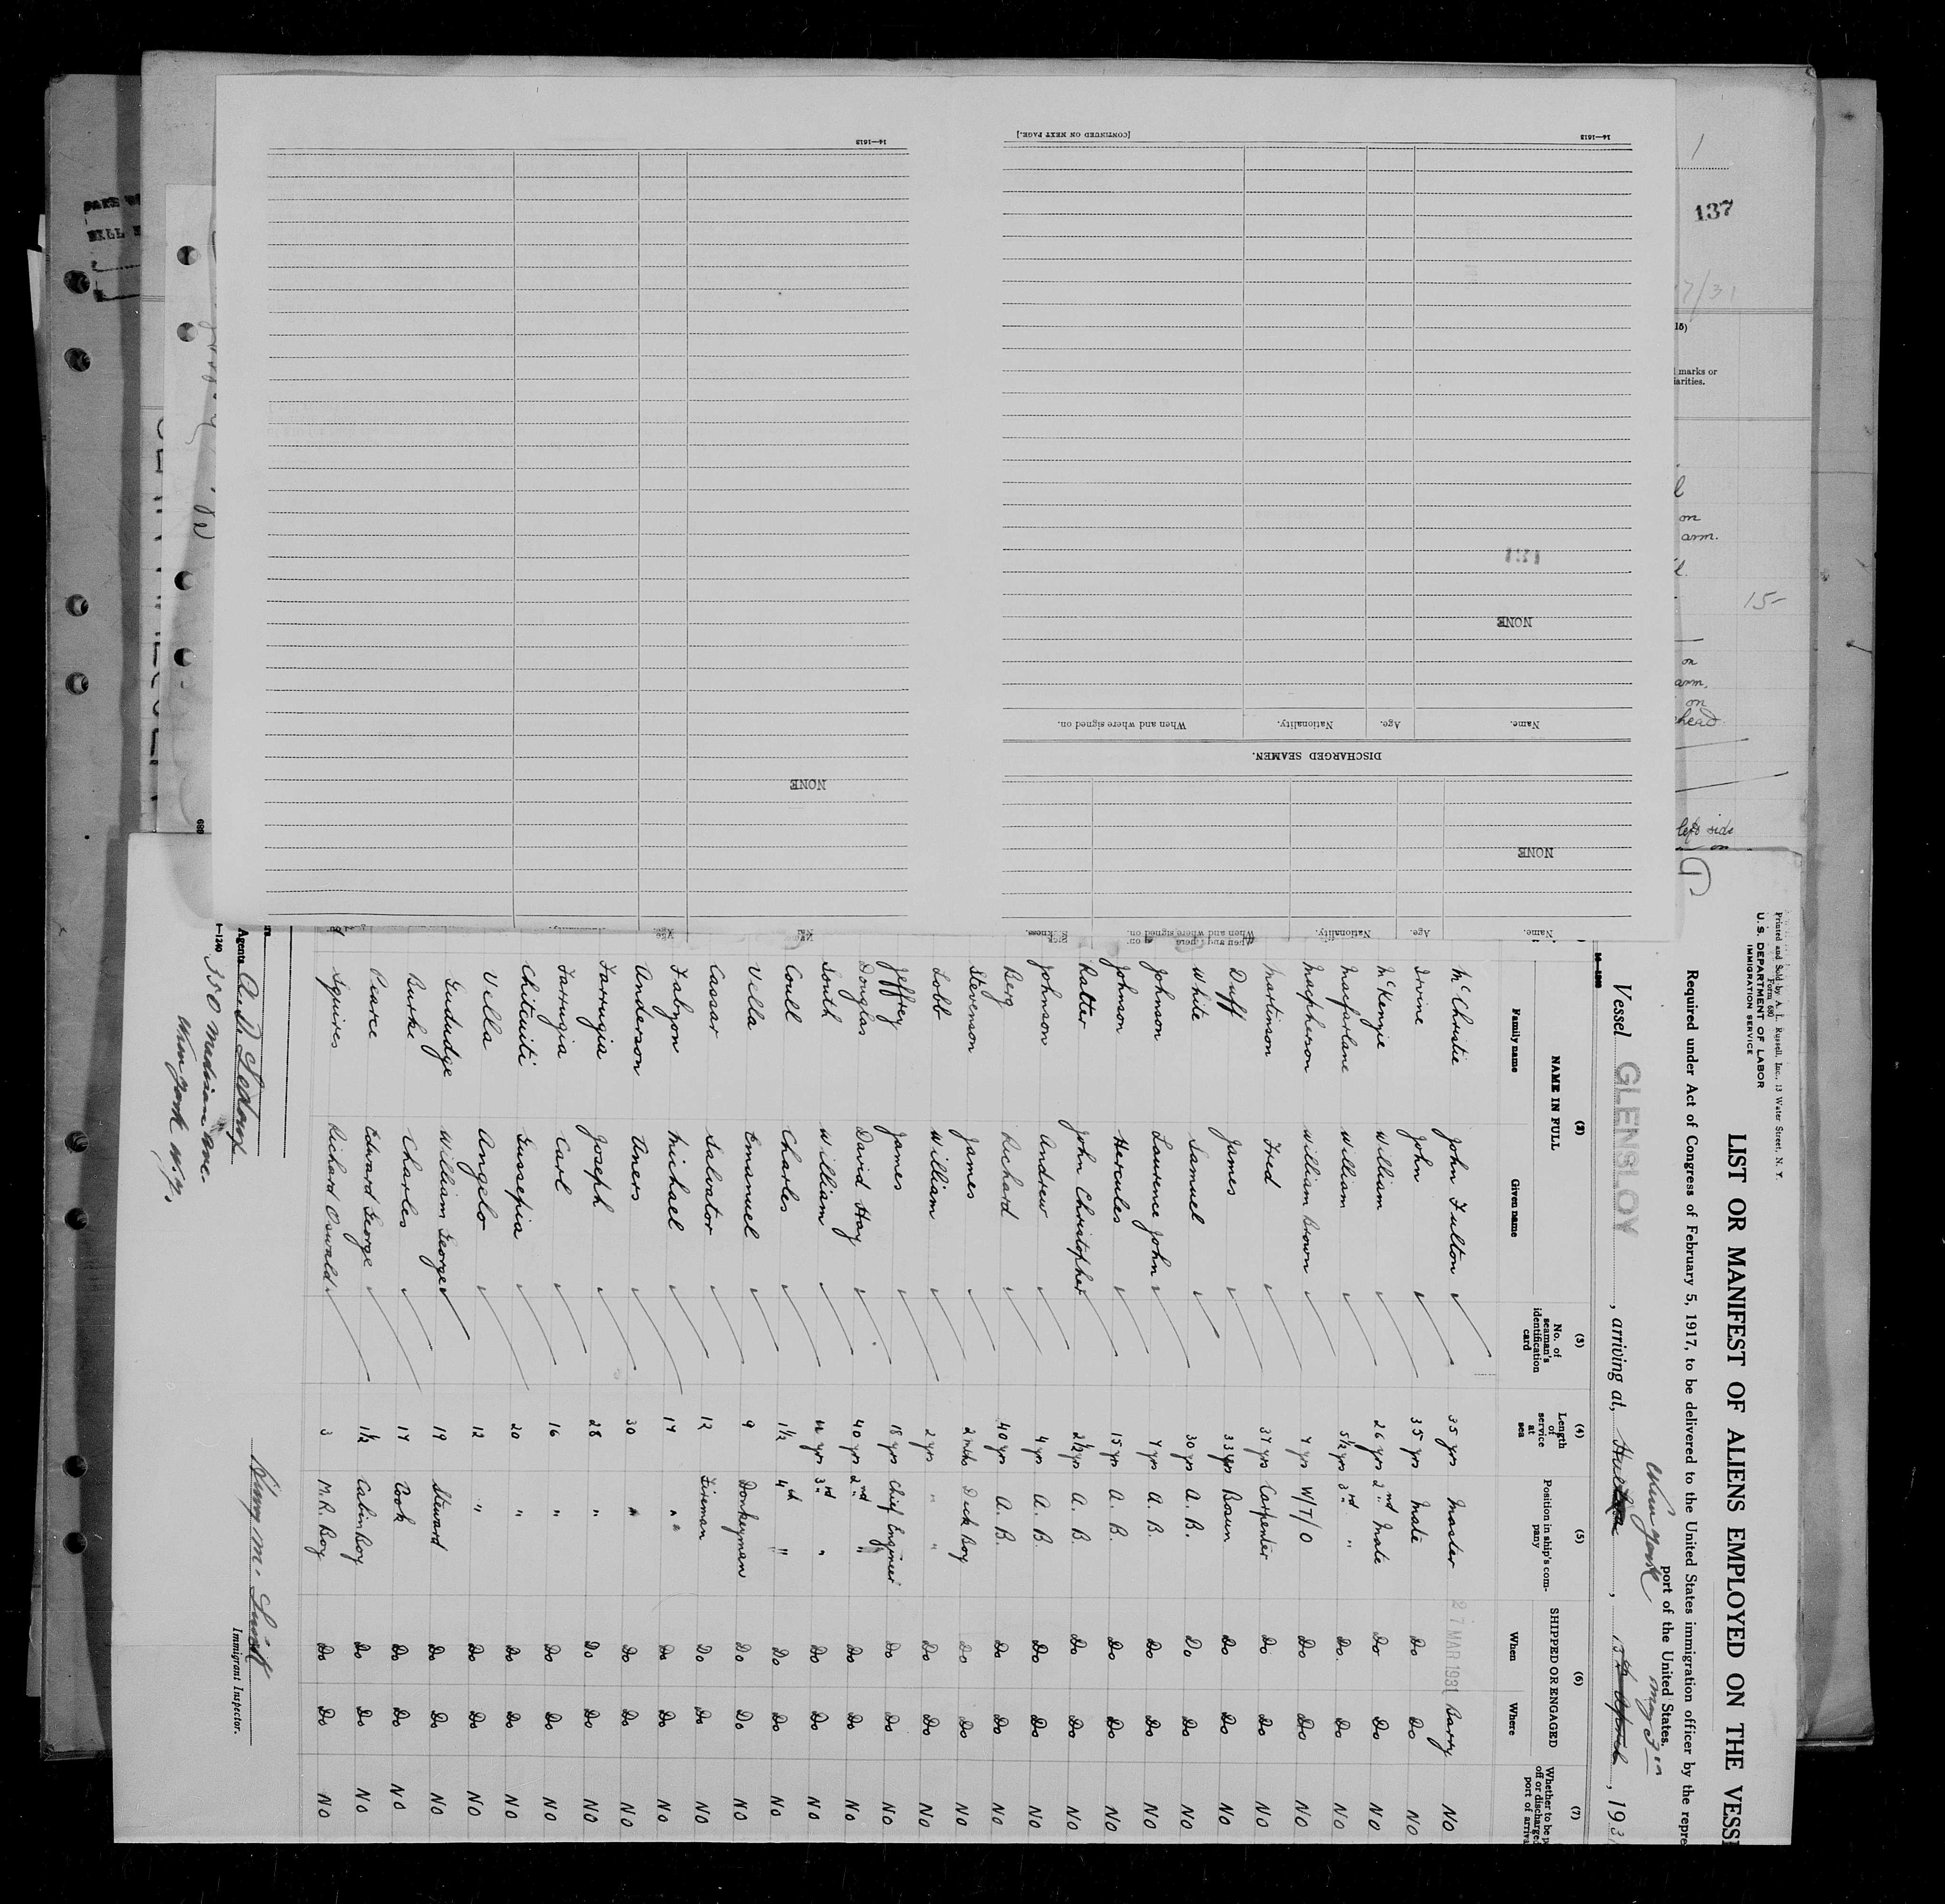 [CONTINUED ON NEXT PAGE.]
14—1613
14—1613
NONE
NONE
DISCHARGED SEAMEN.
Name. Age. Nationality. When and where signed on.
NONE
Name. Age. Nationality. When and where signed on.
137
marks or
on
arm.
15-
on
arm.
on
head
left side
on
Printed and Sold by A. L. Russell, Inc., 13 Water Street, N. Y.
Form 680
U. S. DEPARTMENT OF LABOR
IMMIGRATION SERVICE
LIST OR MANIFEST OF ALIENS EMPLOYED ON THE VESSE
Required under Act of Congress of February 5, 1917, to be delivered to the United States immigration officer by the repre
port of the United States.
New York May 3
Vessel GLENSLOY, arriving at, 15th April, 1931
(2) (3) (4) (5) (6) (7)
NAME IN FULL No. of seaman's identification card Length of service at sea Position in ship's company SHIPPED OR ENGAGED
Family name Given name When Where
McChristie John Fulton 35 yrs Master 27 MAR 1931 Barry NO
Irvine John 35 yrs Mate Do Do NO
McKenzie William 26 yrs 2nd Mate Do Do NO
Macfarlane William 5½ yrs 3rd " Do. Do NO
Macpherson William Brown 7 yrs W/T/O Do Do NO
Martinson Fred 37 yrs Carpenter Do Do NO
Duff James 33 yrs Bosun Do Do NO
White Samuel 30 yrs A. B. Do Do NO
Johnson Laurence John 7 yrs A. B. Do Do NO
Johnson Hercules 15 yrs A. B. Do Do NO
Ratter John Christopher 2½ yrs A. B. Do Do NO
Johnson Andrew 4 yrs A. B. Do Do NO
Berg Richard 40 yrs A. B. Do Do NO
Stevenson James 2 mths Deck Boy Do Do NO
Lobb William 2 yrs " " Do Do NO
Jeffrey James 18 yrs Chief Engineer Do Do NO
Douglas David Hay 40 yrs 2nd " Do Do NO
South William yrs 3rd " Do Do NO
Coull Charles 1½ 4th " Do Do NO
Vella Emanuel 9 Donkeyman Do Do NO
Cassar Salvator 12 Fireman Do Do NO
Fabyon Michael 17 " Do Do NO
Anderson Aners 30 " Do Do NO
Farrugia Joseph 28 " Do Do NO
Farrugia Carl 16 " Do Do NO
Chitcuiti Gussepia 20 " Do Do NO
Vella Angelo 12 " Do Do NO
Gududge William George 19 Steward Do Do NO
Burke Charles 17 Cook Do Do NO
Pearce Edward George 1½ Cabin Boy Do Do NO
Squires Richard Oswald 3 M.R. Boy Do Do NO
Agents
350 Madison Ave.
New York N.Y.
Immigrant Inspector.